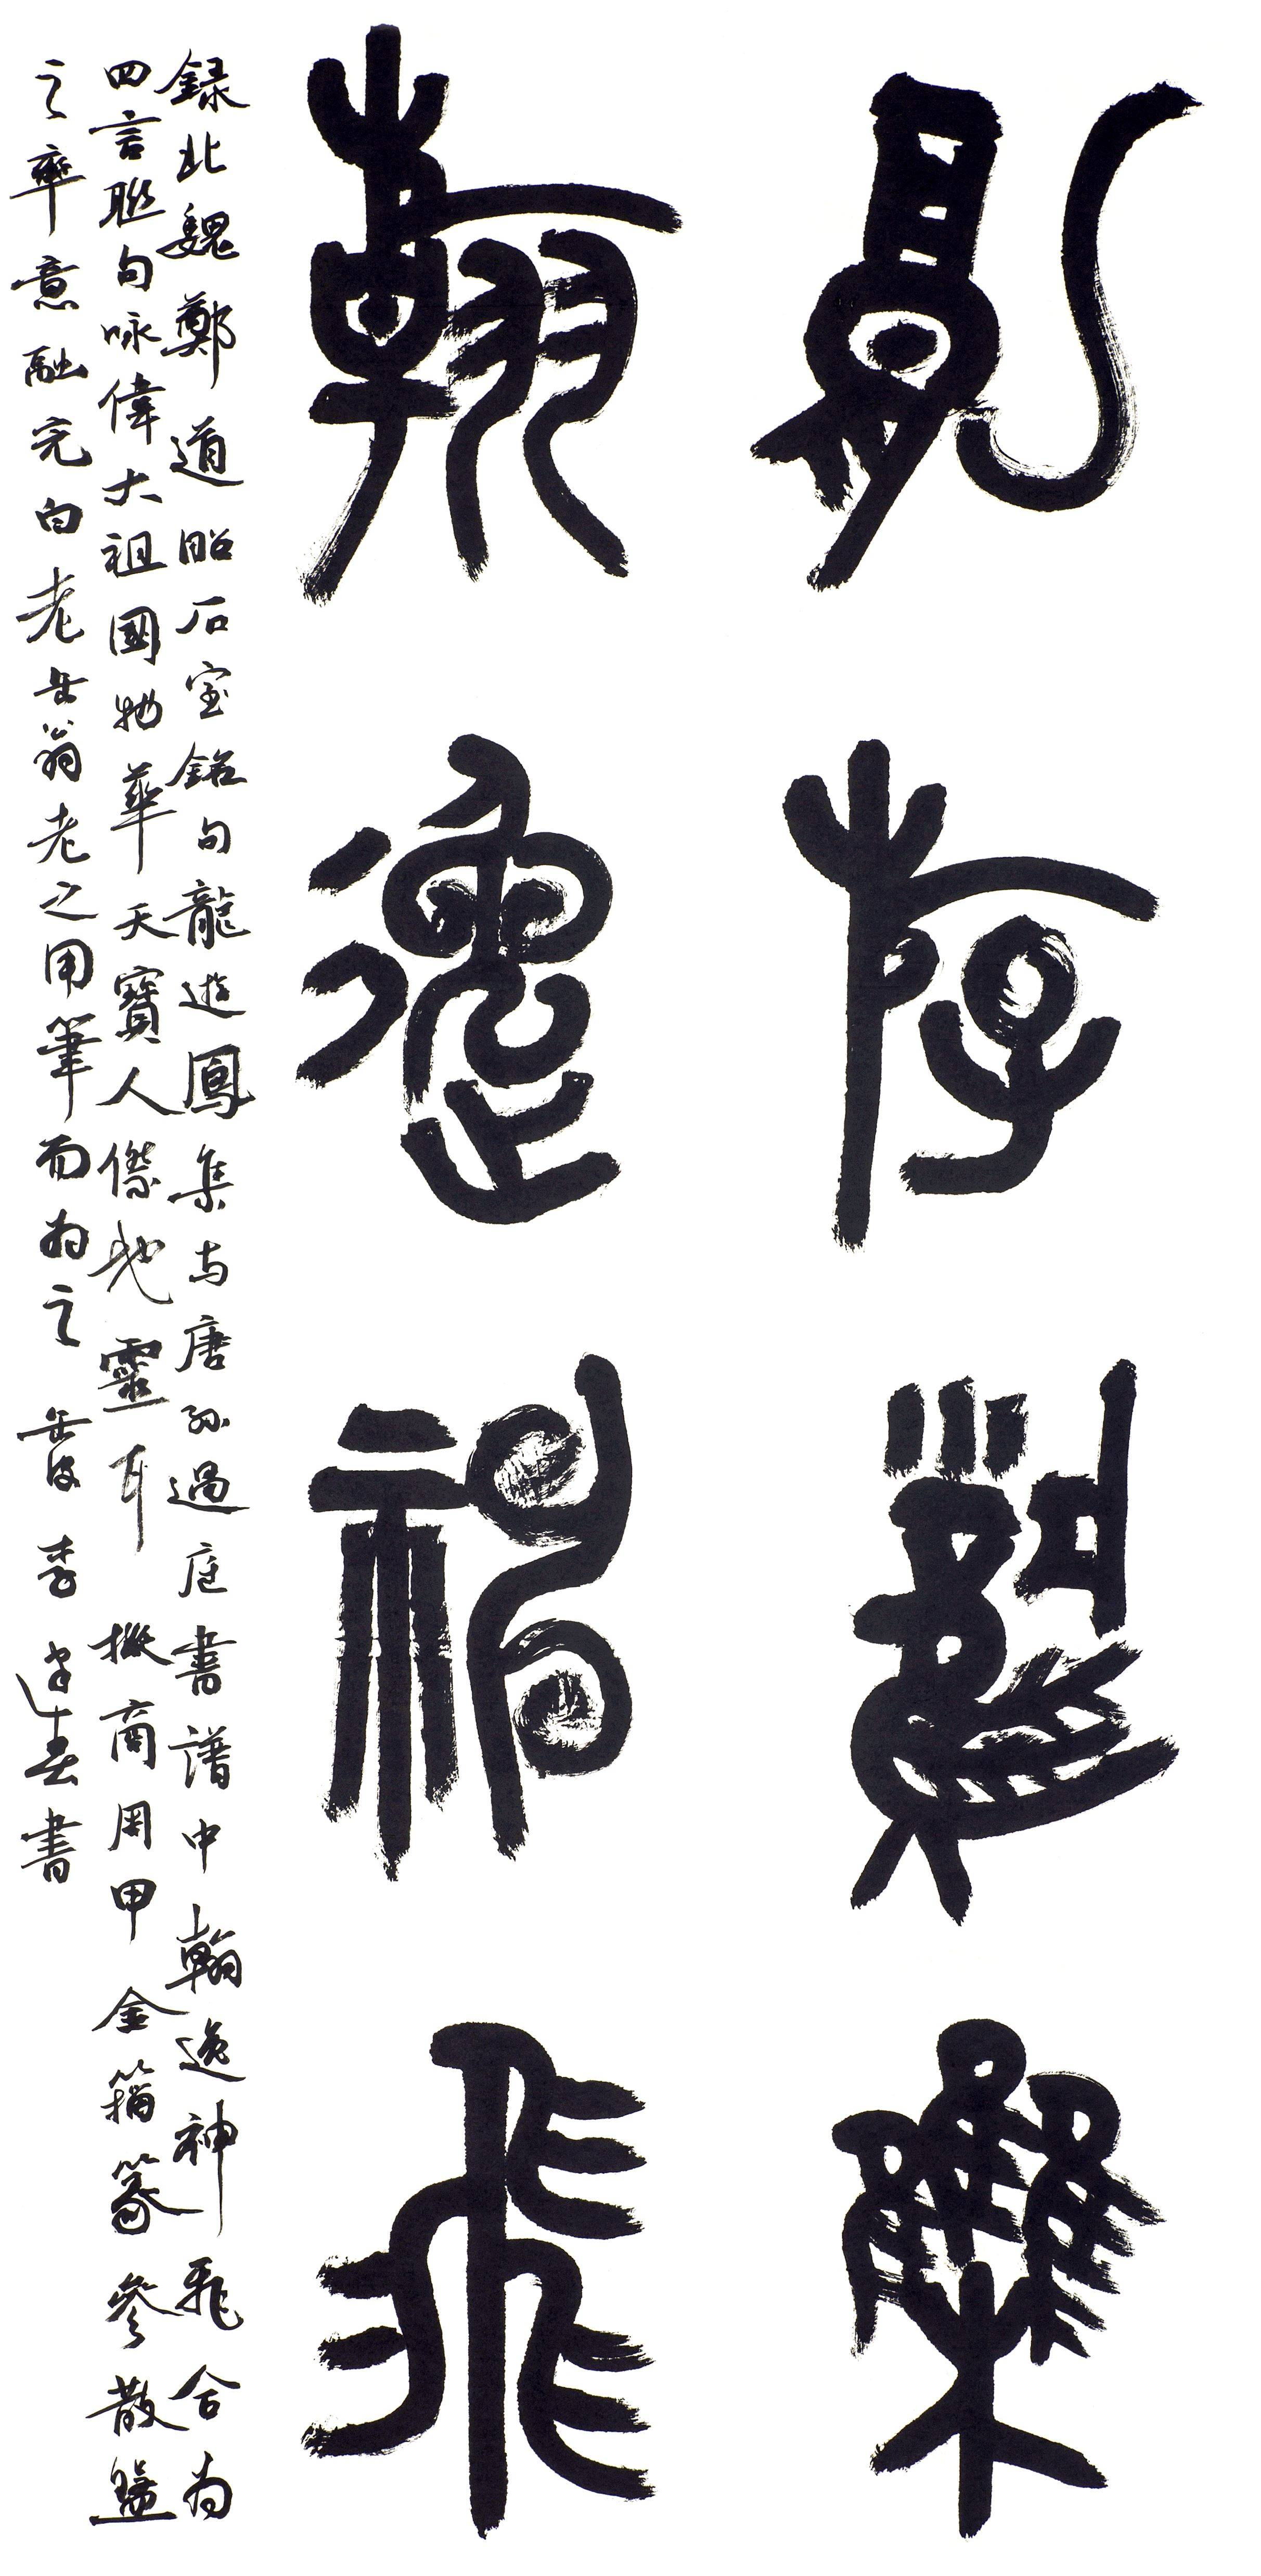 龍斿鳳集
翰逸神飛
録北魏鄭道昭石室銘句龍遊鳳集与唐孫過庭書譜中翰逸神飛合為
四言聯句咏偉大祖國物華天寶人傑地靈耳 擬商周甲金籀篆參散盤
之率意融完白老缶翁老之用筆而為之 李春書